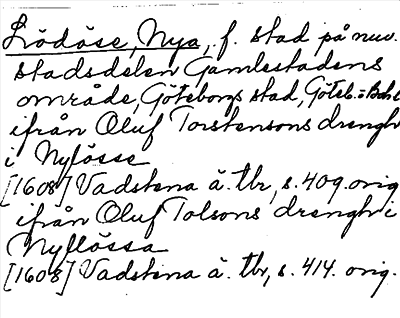 Lödöse, Nya, f. stad på nuv.
stadsdelen Gamlestadens
område, Göteborgs stad, Göteb. o. Boh. l
ifrån Oluf Torstensons drengh
i Nylösse
[1608] Vadstena ä. tbr, s. 409. orig
ifrån Oluf Tolsons drengh i
Nyllössa
[1608] Vadstena ä. tbr, s. 414. orig.